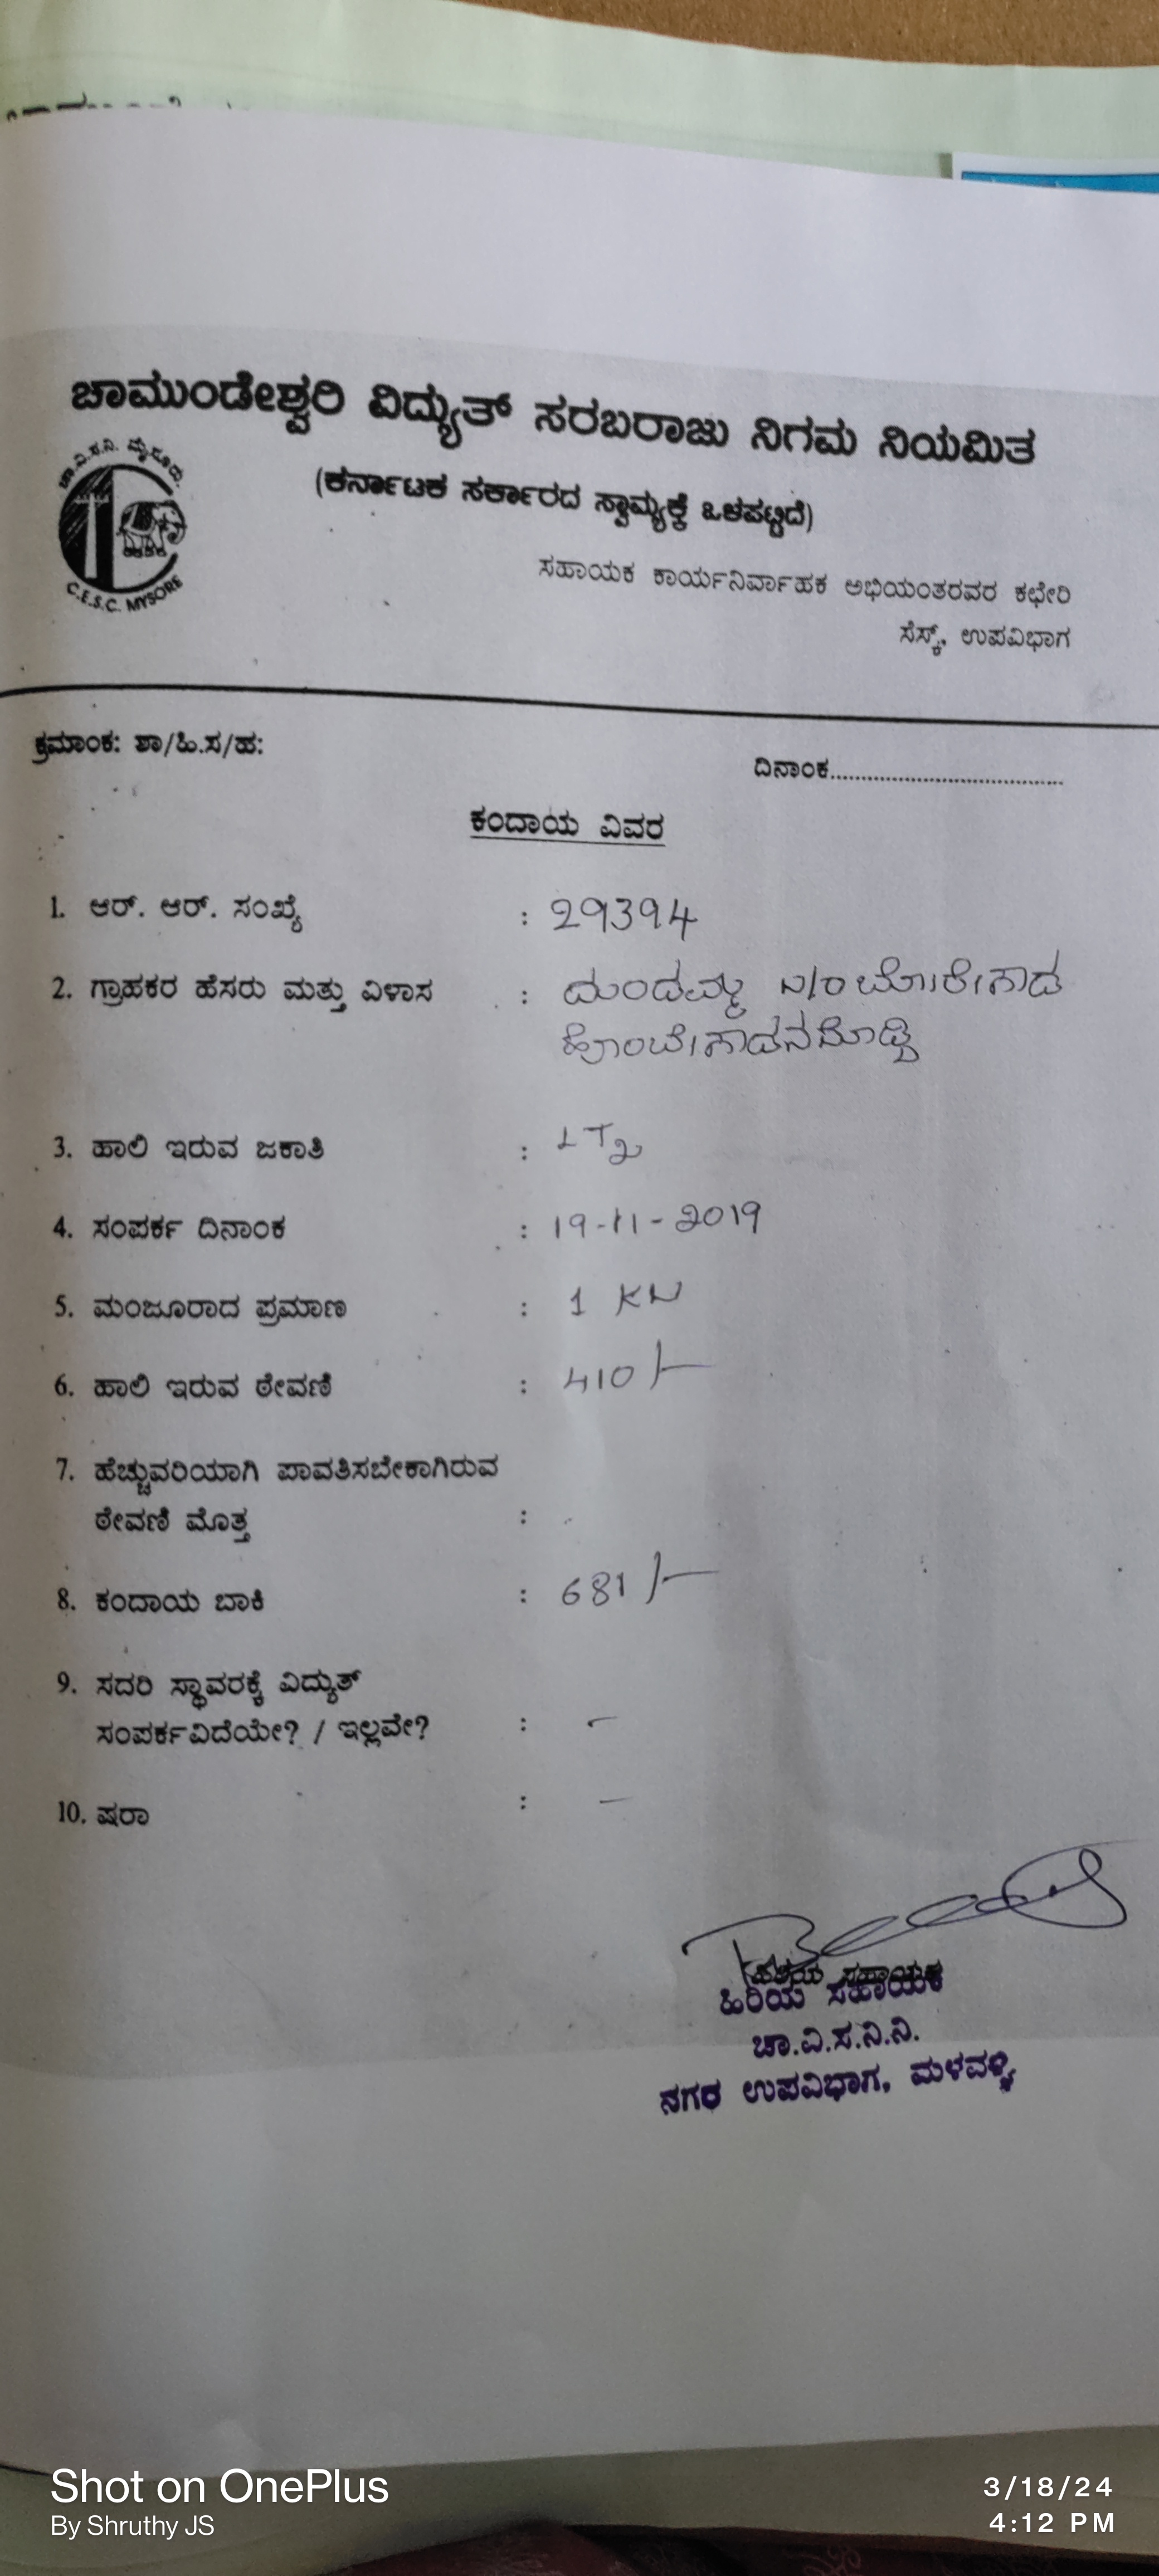 ಚಾಮುಂಡೇಶ್ವರಿ ವಿದ್ಯುತ್ ಸರಬರಾಜು ನಿಗಮ ನಿಯಮಿತ
ಚಾ.ವಿ.ಸ.ನಿ. ಮೈಸೂರು.
(ಕರ್ನಾಟಕ ಸರ್ಕಾರದ ಸ್ವಾಮ್ಯಕ್ಕೆ ಒಳಪಟ್ಟಿದೆ)
C.E.S.C. MYSORE
ಸಹಾಯಕ ಕಾರ್ಯನಿರ್ವಾಹಕ ಅಭಿಯಂತರವರ ಕಛೇರಿ
ಸೆಸ್ಕ್, ಉಪವಿಭಾಗ
ಕ್ರಮಾಂಕ: ಶಾ/ಹಿ.ಸ/ಹ:
ದಿನಾಂಕ......................................
ಕಂದಾಯ ವಿವರ
1. ಆರ್. ಆರ್. ಸಂಖ್ಯೆ : 29394
2. ಗ್ರಾಹಕರ ಹೆಸರು ಮತ್ತು ವಿಳಾಸ :
3. ಹಾಲಿ ಇರುವ ಜಕಾತಿ : LT2
4. ಸಂಪರ್ಕ ದಿನಾಂಕ : 19-11-2019
5. ಮಂಜೂರಾದ ಪ್ರಮಾಣ : 1 KW
6. ಹಾಲಿ ಇರುವ ಠೇವಣಿ : 410/-
7. ಹೆಚ್ಚುವರಿಯಾಗಿ ಪಾವತಿಸಬೇಕಾಗಿರುವ
ಠೇವಣಿ ಮೊತ್ತ :
8. ಕಂದಾಯ ಬಾಕಿ : 681/-
9. ಸದರಿ ಸ್ಥಾವರಕ್ಕೆ ವಿದ್ಯುತ್
ಸಂಪರ್ಕವಿದೆಯೇ? / ಇಲ್ಲವೇ? : -
10. ಷರಾ : -
ಹಿರಿಯ ಸಹಾಯಕ
ಚಾ.ವಿ.ಸ.ನಿ.ನಿ.
ನಗರ ಉಪವಿಭಾಗ, ಮಳವಳ್ಳಿ
Shot on OnePlus
By Shruthy JS
3/18/24
4:12 PM